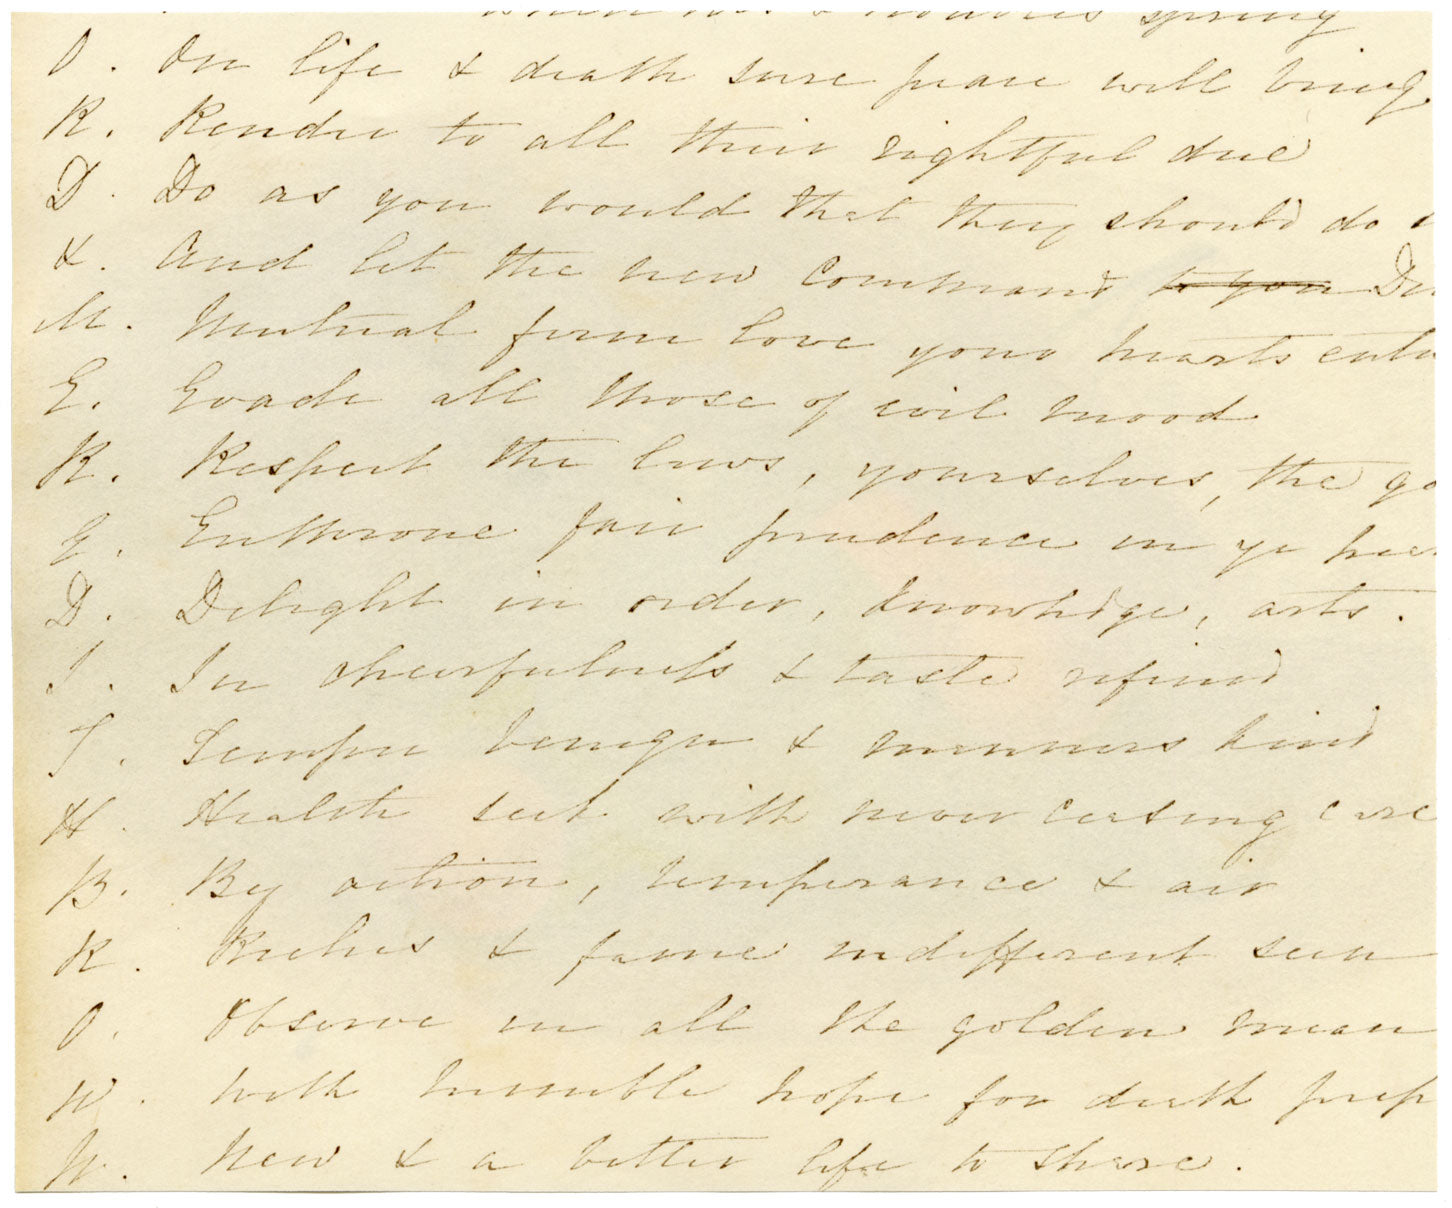 spring
O. On life & death sure peace will bring
R. Render to all their rightful due
D. Do as you would that they should do
&. And let the new command to you
M. Mutual firm love your hearts
E. Evade all those of evil mood
R. Respect the laws, yourselves, the go
E. Enthrone fair prudence in ye hear
D. Delight in order, knowledge, arts.
I. In cheerfulness & taste refined
T. Temper benign & manners kind
H. Health seek with never ceasing care
B. By action, temperance & air
R. Riches & fame indifferent seen
O. Observe in all the golden mean
W. With humble hope for death prep
N. New & a better life to share.